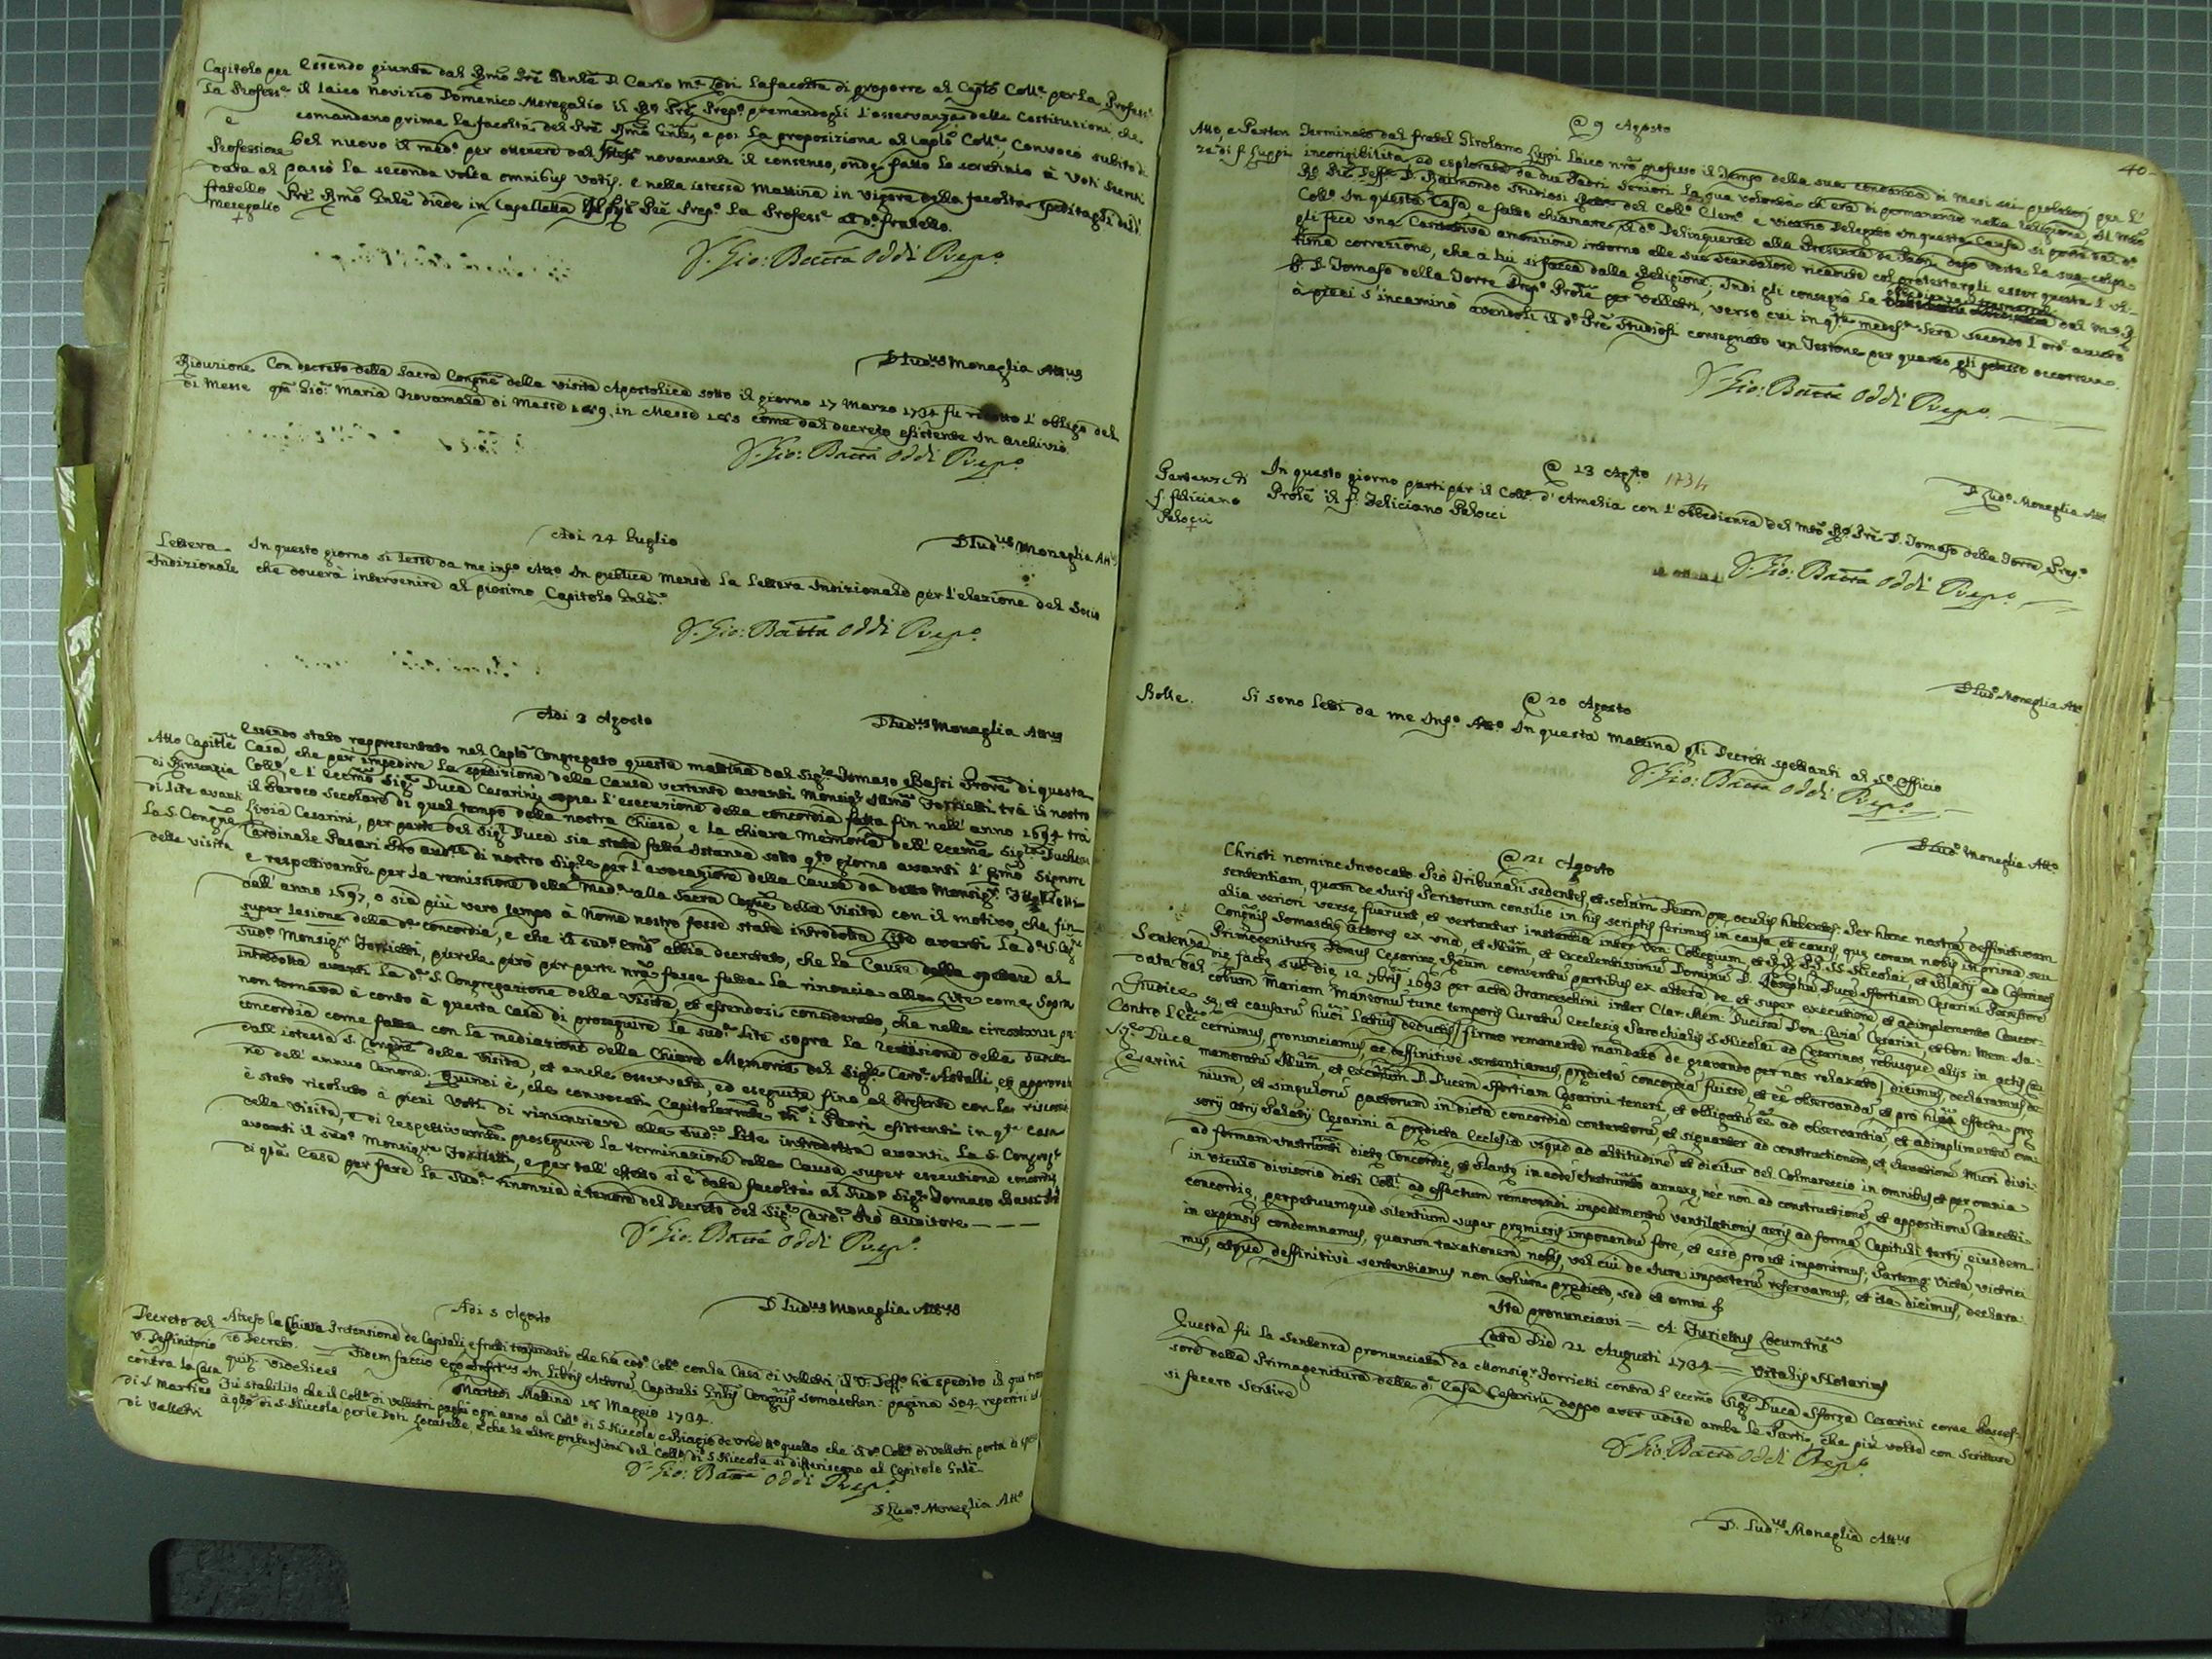 Capitolo per la Profess.e e Professione data al fratello Meregalio
Essendo giunta dal Rmo Pre Genle D. Carlo Ma Lodi la facoltà di proporre al Caplo Coll.e per la Profess.e
il laico novizio Domenico Meregalio il Rdo Pre Prep.o premendogli l'osservanza delle Costituzioni, che
comandano prima la facoltà del Pre Rmo Genle, e poi la proposizione al Caplo Coll.e, Convocò subito di
bel nuovo il med.o per ottenere dal novamente il consenso, onde fatto lo scrutinio à Voti Secreti
passò la seconda volta omnibus votis. e nella istessa Mattina in vigore della facoltà speditagli dal d.o
Pre Rmo Genle diede in Capelletta il Pre Prep.o La Profess.e al d.o fratello.
D. Gio: Batta Oddi Prep.o
D Lud.us Moneglia Attus
Riduzione di Messe
Con decreto della Sacra Congne della Visita Apostolica sotto il giorno 17 Marzo 1734 fu ridotto l'obligo del
qm Gio: Maria di Messe in Messe come dal decreto esistente in Archivio.
D. Gio: Batta Oddi Prep.o
D Lud.us Moneglia Att.us
Adi 24 Luglio
Lettera Indizionale
In questo giorno si lesse da me inf.o Att.o in publica Mensa la Lettera Indizionale per l'elezione del Socio
che doverà intervenire al prosimo Capitolo Genle.
D. Gio: Batta Oddi Prep.o
D Lud.us Moneglia Attus
Adi 3 Agosto
Atto Capitle di Rinunzia di lite avanti La S. Congne della visita
Essendo stato rappresentato nel Caplo Congregato questa mattina dal Sig.re Tomaso Bassi Prore di questa
Casa che per impedire la spedizione della Causa vertente avanti Monsig.r Illmo Forrietti trà il nostro
Coll.o, e l'Eccmo Sig.r Duca Cesarini sopra l'esecuzione della concordia fatta fin nell'anno 1694 trà
il Paroco Secolare di quel tempo della nostra Chiesa, e la chiara Memoria dell'Eccma Sig.ra Duchessa
Livia Cesarini, per parte del Sig.r Duca sia stata fatta Istanza sotto q.to giorno avanti l'Emo Signore
Cardinale Passari Pro aud.re di nostro Sig.re per l'avocazione della Causa da detto Monsig.r Forrietti
e respettivamte per la remissione della Med.a alla Sacra Congne della Visita con il motivo, che fin
dall'anno 1697, o sia più vero tempo à Nome nostro fosse stata introdotta Lite avanti la d.a S. Cogne
super lesione della d.a concordia, e che il sud.o Emo abbia decretato, che la Causa della spettare al
sud.o Monsig.r Forrietti, purche però per parte nra fosse fatta la rinoncia alla Lite come sopra
introdotta avanti la d.a S. Congregazione della Visita, et essendosi considerato, che nelle circostanze
non tornava à conto à questa Casa di proseguire la sud.a Lite sopra la Lesione della
concordia come fatta con la mediazione della Chiara Memoria del Sig.r Card.e Astalli, et approvata
dall'istessa S. Congne della Visita, et anche osservata, ed eseguita fino al Presente con la
ne dell'annuo Canone. Quindi è, che convocati Capitolarmte i Padri esistenti in q.ta Casa
è stato risoluto à pieni Voti di rinunziare alla sud.a Lite introdotta avanti la S. Congne
della Visita, e di respettivamte proseguire la terminazione della Causa super executione concordie
avanti il sud.o Monsig.re Forrietti, e per tall'effetto si è data facoltà al sud.o Sig.r Tomaso Bassi
di qta Casa per fare la sud.a rinonzia à tenore del Decreto del Sig.r Card.e Prò Auditore — — —
D. Gio: Batta Oddi Prep.o
D Lud.us Moneglia Attus
Adi 5 Agosto
Decreto del V. Deffinitorio contra la Casa di S. Martino di Velletri
Atteso la Chiara Intensione de Capitali e frutti che hà cod.o Coll.o con la Casa di Velletri, il V. Deff.o ha spedito il qui
to decreto. = Fidem faccio ego Infrtus In Libris Actorum Capituli Gnlis Congnis Somaschen: pagina 504 reperiri
quib. videlicet Martedi Mattina 18 Maggio 1734.
Fu stabilito che il Coll.o di Velletri paghi ogni anno al Coll.o di S. Niccola e Biagio de Urbe quello che il d.o Coll.o di Velletri porta
à q.llo di S. Niccola per le doti Locatelle, e che le altre pretensioni del Coll.o di S. Niccola si differiscono al Capitolo Gnle.
D. Gio: Batta Oddi Prep.o
D Lud.o Moneglia Att.o
40
@ 9 Agosto
Atto, e Partenza di f. Luppi
Terminato dal fratel Girolamo Luppi Laico nro professo il tempo della sua condanna di Mesi sei per l'
incorigibilità ed esplorata da due Padri Seniori la sua volontà ch'era di permanenza nella religione, il mto
Rdo Pre D. Raimondo Studiosi del Coll.o Clem.o e Vicario Delegato in questa Causa si portò dal d.o
Coll.o In questa Casa, e fatto chiamare il d.o Delinquente alla Presenza de Padri dopo la sua colpa
gli fece una Caritativa amonizione intorno alle sue scandalose ricadute col protestargli esser questa l'ul-
tima correzione, che a lui si facea dalla Religione; Indi gli consegnò la obbedienza del m.o R.
P. D. Tomaso della Torre Prep.o Prole per Velletri, verso cui in q.ta medes.a Sera secondo l'ord.e avuto
à piedi s'incaminò avendoli il d.o Pre Studiosi consegnato un Testone per quanto gli potesse occorrere.
D. Gio: Batta Oddi Prep.o
D Lud.o Moneglia Att.o
@ 13 Ag.sto 1734
Partenza di f. Feliciano Pelocci
In questo giorno parti per il Coll.o d'Amelia con l'obbedienza del mto Rdo Pre D. Tomaso della Torre Prep.o
Prole il f. Feliciano Pelocci
D. Gio: Batta Oddi Prep.o
D Lud.o Moneglia Att.o
@ 20 Agosto
Bolle.
Si sono letti da me Inf.o Att.o In questa Mattina gli Decreti spettanti al S.o Officio
D. Gio: Batta Oddi Prep.o
D Lud.o Moneglia Att.o
@ 21 Agosto
Sentenza data dal Giudice contro l'Ecc. Sig.r Duca Cesarini
Christi nomine Invocato. Prò Tribunali sedentes, et solùm Deum pre oculis habentes. Per hanc nostrã deffinitivam
sententiam, quam de Juris Peritorum consilio in his scriptis ferimus in causa, et causis, que coram nobis in prima seu
alia veriori verse fuerunt, et vertuntur instantia inter Ven: Collegium, et RR. PP. SS. Nicolai, et Blasij ad Cesarinos
Congnis Somasche Actores ex una, et Illum, et Excelentissimũ Dominũ D. Josephũ Ducẽ Sfortiam Cesarini Possessore
Primogeniture Domus Cesarine Reum conventũ partibus ex altera de et super executione, et adimplemento Concor-
die facte sub die 12 7bris 1693 per acta Franceschini inter Clar: Mem: Ducissã Don: Liviã Cesarini, et bon: Mem: Ja-
cobum Mariam Mansonũ tunc temporis Curatũ Ecclesie Parochialis S. Nicolai ad Cesarinos rebusque alijs in actis cau-
se, et causarũ huci Latius deductis (firmo remanente mandato de gravando per nos relaxato) dicimus, declaramus de-
cernimus, pronunciamus, ac deffinitivè sententiamus, predictã concordiã fuisse, et eẽ observandã, et pro effectu pre
memoratũ Illum, et Excmum D. Ducem Sfortiam Cesarini teneri, et obligatũ eẽ ad observantiã, et adimplimentũ om-
nium, et singulorũ pactorum in dicta concordia contentorũ, et signanter ad constructionem, et elevationẽ Muri divi-
sorij Atrij Palatij Cesarini à predicta Ecclesia usque ad altitudinẽ ut dicitur del Colmareccio in omnibus, et per omnia
ad formam Instrumti dicte Concordie, et Plante in eodẽ Instrumto annexe, nèc non ad constructionẽ, et appositionẽ Cancelli
in viculo divisorio dicti Coll.i ad effectum removendi impedimentũ ventilationis aeris ad formã Capituli tertij eiusdem
concordie, perpetuumque silentium super premissis imponendũ fore, et esse, prout imponimus; Partemq. Victã victrici
in expensis condemnamus, quarum taxationem nobis, vel cui de Jure imposterũ reservamus, et ita dicimus, declara-
mus, atque deffinitivè sententiamus non solùm predicto, sed et omni
Ità pronunciavi = A: Furiettus Locumtns
Lata Die 21 Augusti 1734 = Vitalis Notarius
Questa fù la Sentenza pronunciata da Monsig.r Forrietti contra l'Eccmo Sig.r Duca Sforza Cesarini come Posses-
sore della Primogenitura della d.a Casa Cesarini doppo aver udite ambe le Parti, che più volte con Scritture
si fecero sentire
D. Gio: Batta Oddi Prep.o
D. Lud.us Moneglia Att.us